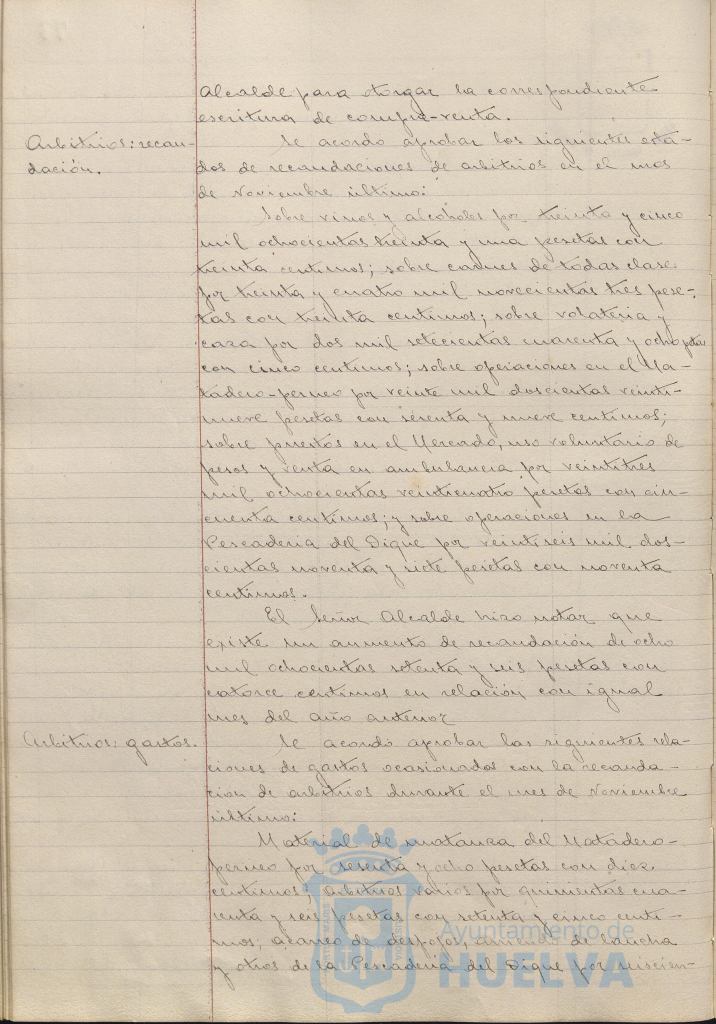 Alcalde para otorgar la correspondiente
escritura de compra-venta.
Arbitrios: recau-
dación.
Se acordo aprobar los siguientes esta-
dos de recaudaciones de arbitrios en el mes
de Noviembre último:
Sobre vinos y alcoholes por treinta y cinco
mil ochocientas treinta y una pesetas con
treinta centimos; sobre carnes de todas clases
por treinta y cuatro mil novecientas tres pese-
tas con treinta centimos; sobre volateria y
caza por dos mil setecientas cuarenta y ocho ptas
con cinco centimos; sobre operaciones en el Ma-
tadero-perneo por veinte mil doscientas veinti-
nueve pesetas con sesenta y nueve centimos;
sobre puestos en el Mercado, uso voluntario de
pesos y venta en ambulancia por veintitres
mil ochocientas veinticuatro pesetas con cin-
cuenta centimos; y sobre operaciones en la
Pescaderia del Dique por veintiseis mil dos-
cientas noventa y siete pesetas con noventa
centimos.
El Señor Alcalde hizo notar que
existe un aumento de recaudación de ocho
mil ochocientas setenta y seis pesetas con
catorce centimos en relación con igual
mes del año anterior
Arbitrios: gastos.
Se acordó aprobar las siguientes rela-
ciones de gastos ocasionados con la recauda-
cion de arbitrios durante el mes de Noviembre
último:
Material de matanza del Matadero-
perneo por sesenta y ocho pesetas con diez
centimos; arbitrios varios por quinientas cua-
renta y seis pesetas con setenta y cinco centi-
mos; acarreo de despojos, arriendo de lancha
y otros de la Pescaderia del Dique por seiscien-
Ayuntamiento de
HUELVA